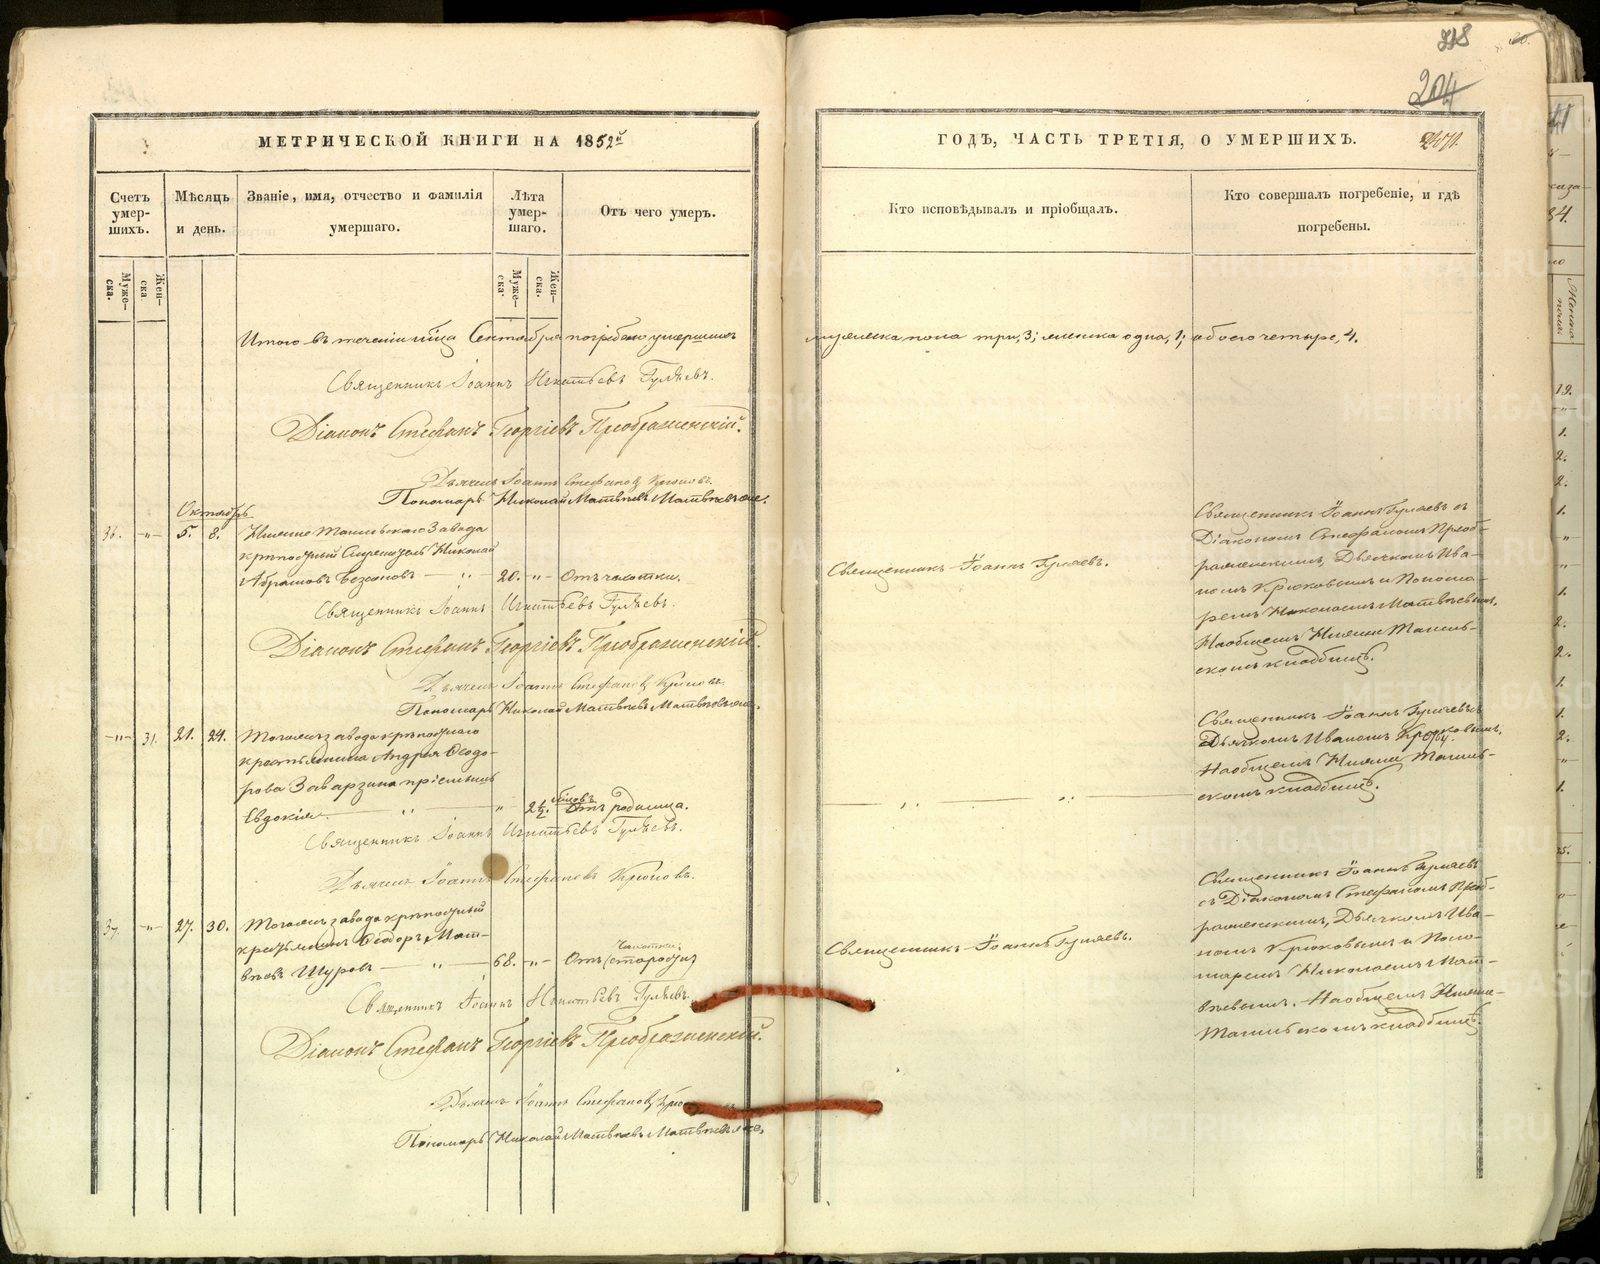 318
204
МЕТРИЧЕСКОЙ КНИГИ НА 1852й
ГОДЪ, ЧАСТЬ ТРЕТІЯ, О УМЕРШИХЪ.
Счетъ умер-шихъ.
Мѣсяцъ и день.
Званіе, имя, отчество и фамилія умершаго.
Лѣта умер-шаго.
Отъ чего умеръ.
Кто исповѣдывалъ и пріобщалъ.
Кто совершалъ погребеніе, и гдѣ погребены.
Муже-ска.
Жен-ска.
Муже-ска.
Жен-ска.
Итого въ теченіи м̃ца Октября погребено умершихъ
мужеска пола три, 3; женска одна, 1; обоего четыре, 4.
Священникъ Іоаннъ Игнатьевъ Гуляевъ.
Діаконъ Стефанъ Георгіевъ Преображенскій.
Дьячекъ Іоаннъ Стефановъ Крюковъ.
Пономарь Николай Матвѣевъ
Октябрь
36. -„- 5. 8. Нижне Тагильскаго Завода
крѣпостный Николай
Абрамовъ 20. -„- Отъ чахотки.
Священникъ Іоаннъ Гуляевъ.
Священникъ Іоаннъ Гуляевъ съ
Діакономъ Стефаномъ Преоб-
раженскимъ, Дьячкомъ Ива-
номъ Крюковымъ и Понома-
ремъ Николаемъ Матвѣевымъ.
На общемъ Нижне Тагиль-
скомъ кладбищѣ.
Священникъ Іоаннъ Игнатьевъ Гуляевъ.
Діаконъ Стефанъ Георгіевъ Преображенскій.
Дьячекъ Іоаннъ Стефановъ Крюковъ.
Пономарь Николай Матвѣевъ
-„- 31. 21. 24. Тогожъ завода крѣпостнаго
крестьянина Андрея Ѳеодо-
рова Заварзина
Евдокія 2½ Отъ родимца.
Священникъ Іоаннъ Гуляевъ съ
Дьячкомъ Иваномъ Крюковымъ.
На общемъ Нижне Тагиль-
скомъ кладбищѣ.
Священникъ Іоаннъ Игнатьевъ Гуляевъ.
Дьячекъ Іоаннъ Стефановъ Крюковъ.
37. -„- 27. 30. Тогожъ завода крѣпостный
крестьянинъ Ѳеодоръ Мат-
вѣевъ Щуровъ 68. -„- Отъ (старости)
чахотки.
Священникъ Іоаннъ Гуляевъ.
Священникъ Іоаннъ Гуляевъ
съ Діакономъ Стефаномъ Преоб-
раженскимъ, Дьячкомъ Ива-
номъ Крюковымъ и Поно-
маремъ Николаемъ Мат-
вѣевымъ. На общемъ Нижне-
Тагильскомъ кладбищѣ.
Священникъ Іоаннъ Игнатьевъ Гуляевъ.
Діаконъ Стефанъ Георгіевъ Преображенскій.
Дьячекъ Іоаннъ Стефановъ
Пономарь Николай Матвѣевъ
METRIKI.GASO-URAL.RU